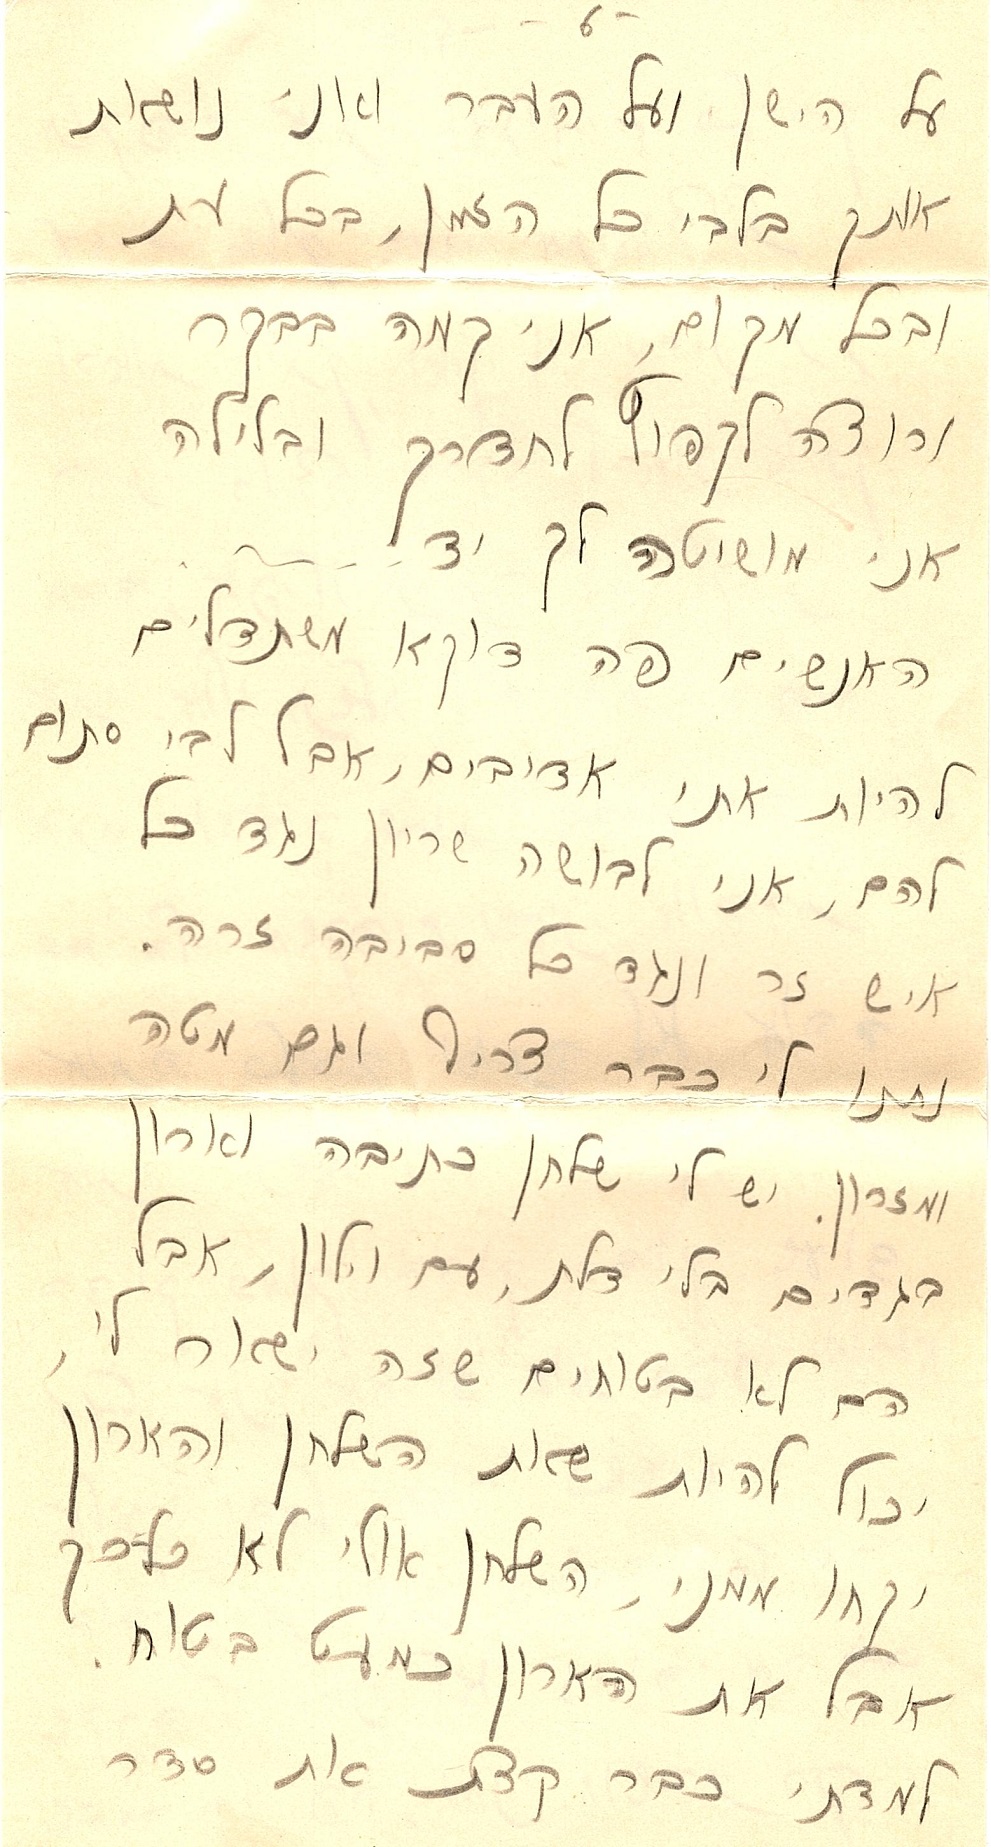 -6-
על הישן ועל העבר ואני נושאת
אותך בלבי כל הזמן, בכל עת
ובכל מקום, אני קמה בבקר
ורוצה לקפוץ לחדרך ובלילה
אני מושיטה לך יד
האנשים פה דוקא משתדלים
להיות אתי אדיבים, אבל לבי סתום
להם, אני לבושה שריון נגד כל
איש זר ונגד כל סביבה זרה.
נתנו לי כבר צריף וגם מטה
ומזרון. יש לי שלחן כתיבה וארון
בגדים בלי דלת, עם וילון, אבל
הם לא בטוחים שזה ישאר לי,
יכול להיות שאת השלחן והארון
יקחו ממני, השלחן אולי לא כל כך
אבל את הארון כמעט בטוח.
למדתי כבר קצת את סדר